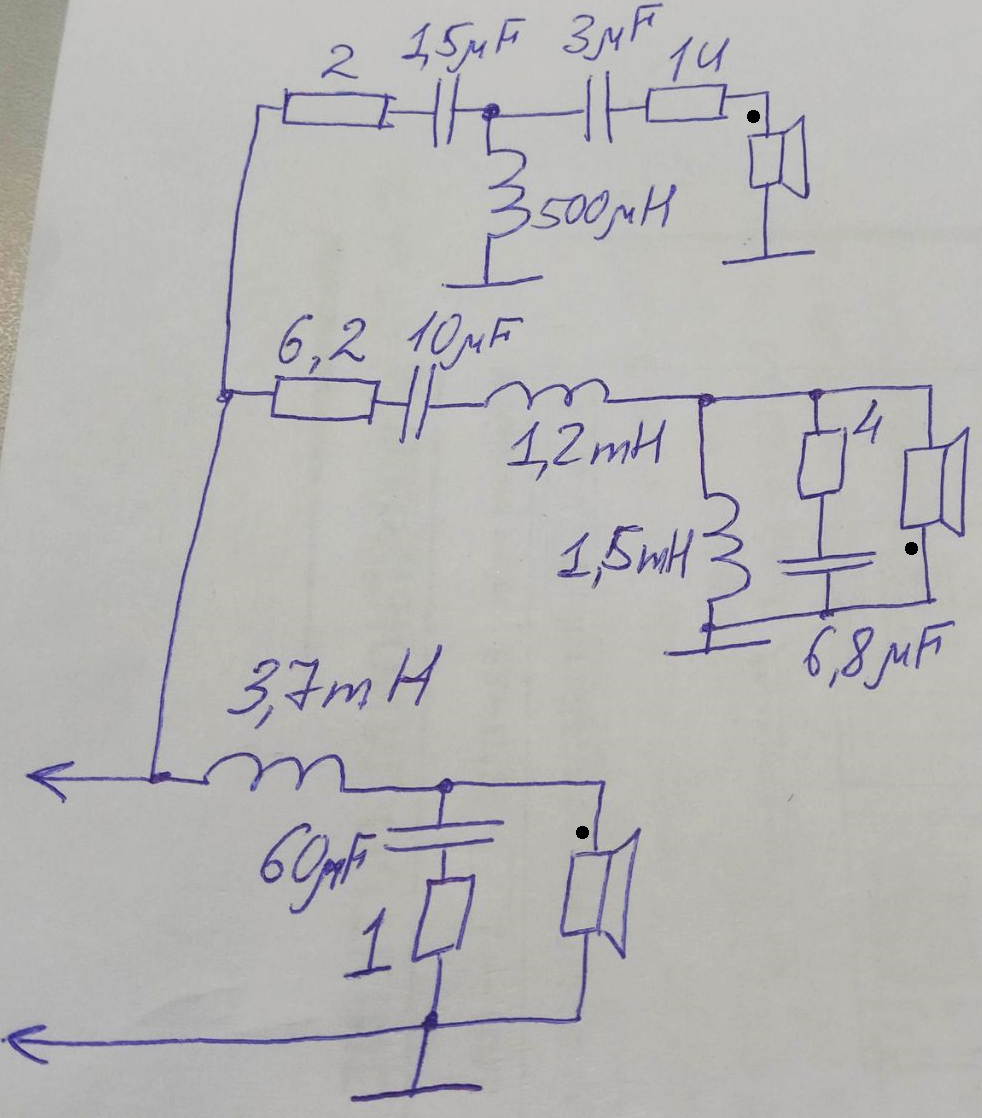 2 1,5μF 3μF 14
500μH
6,2 10μF
1,2mH 4
1,5mH
6,8μF
3,7mH
60μF
1